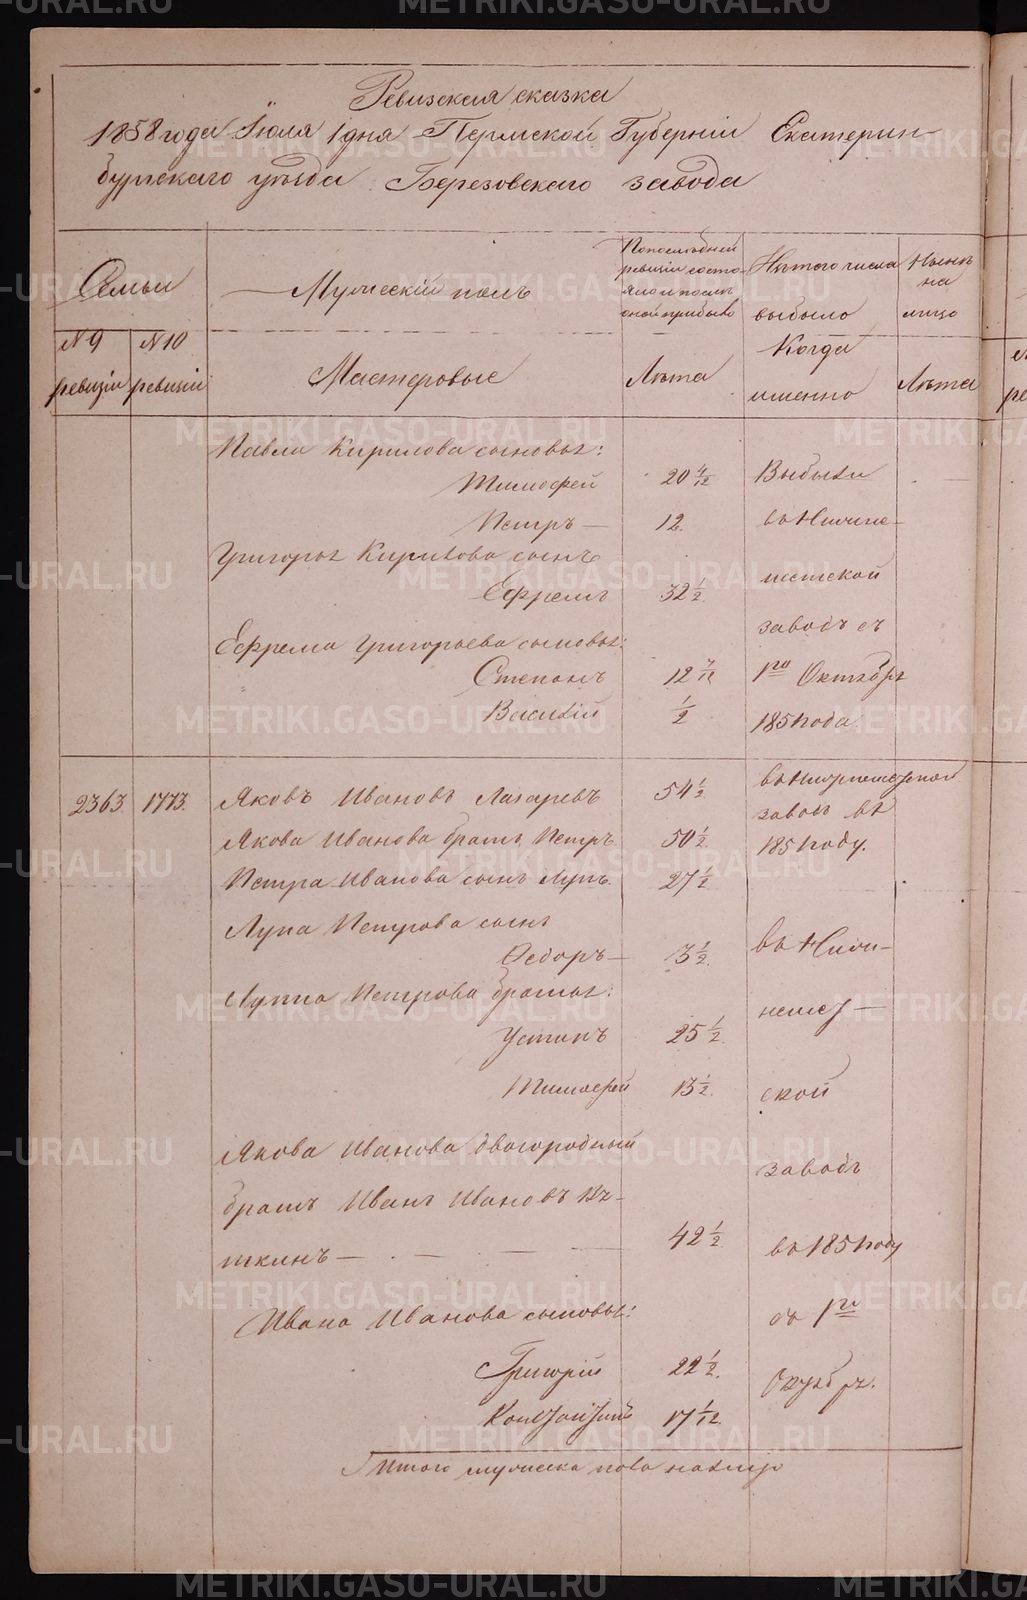 Ревизская сказка
1858 года Іюля 1 дня Пермской Губерніи Екатерин-
бургскаго уѣзда Березовскаго завода
Семьи
Мужескій полъ
По последней
ревизіи состо-
яло и послѣ
оной прибыло
Изъ того числа
выбыло
Нынѣ
на
лицо
N 9
ревизіи
N 10
ревизіи
Мастеровые
Лѣта
Когда
именно
Лѣта
Павла Кирилова сыновья:
Тимофей 20 4/12 Выбыли
Петръ — 12.
Григорья Кирилова сынъ
Ефремъ 32 1/2.
заводъ съ
Ефрема Григорьева сыновья:
Степанъ 12
1го Октября
Василій 1/2
1851 года.
2363. 1773. Яковъ Ивановъ Лазаревъ 54 1/2
заводъ въ
Якова Иванова братъ Петръ 50 1/2. 1851 году.
Петра Иванова сынъ Лупъ. 27 1/2
Лупа Петрова сынъ
Федоръ — 3 1/2.
Луппа Петрова братья:
Устинъ 25 1/2.
Тимофей 13 1/2. ской
Якова Иванова двогородный
заводъ
братъ Иванъ Ивановъ
42 1/2
въ 1851 году
Ивана Иванова сыновья:
съ 1го
Григорій 22 1/2.
Октябр.
Константинъ 17 1/12.
Итого мужеска пола налицо
METRIKI.GASO-URAL.RU